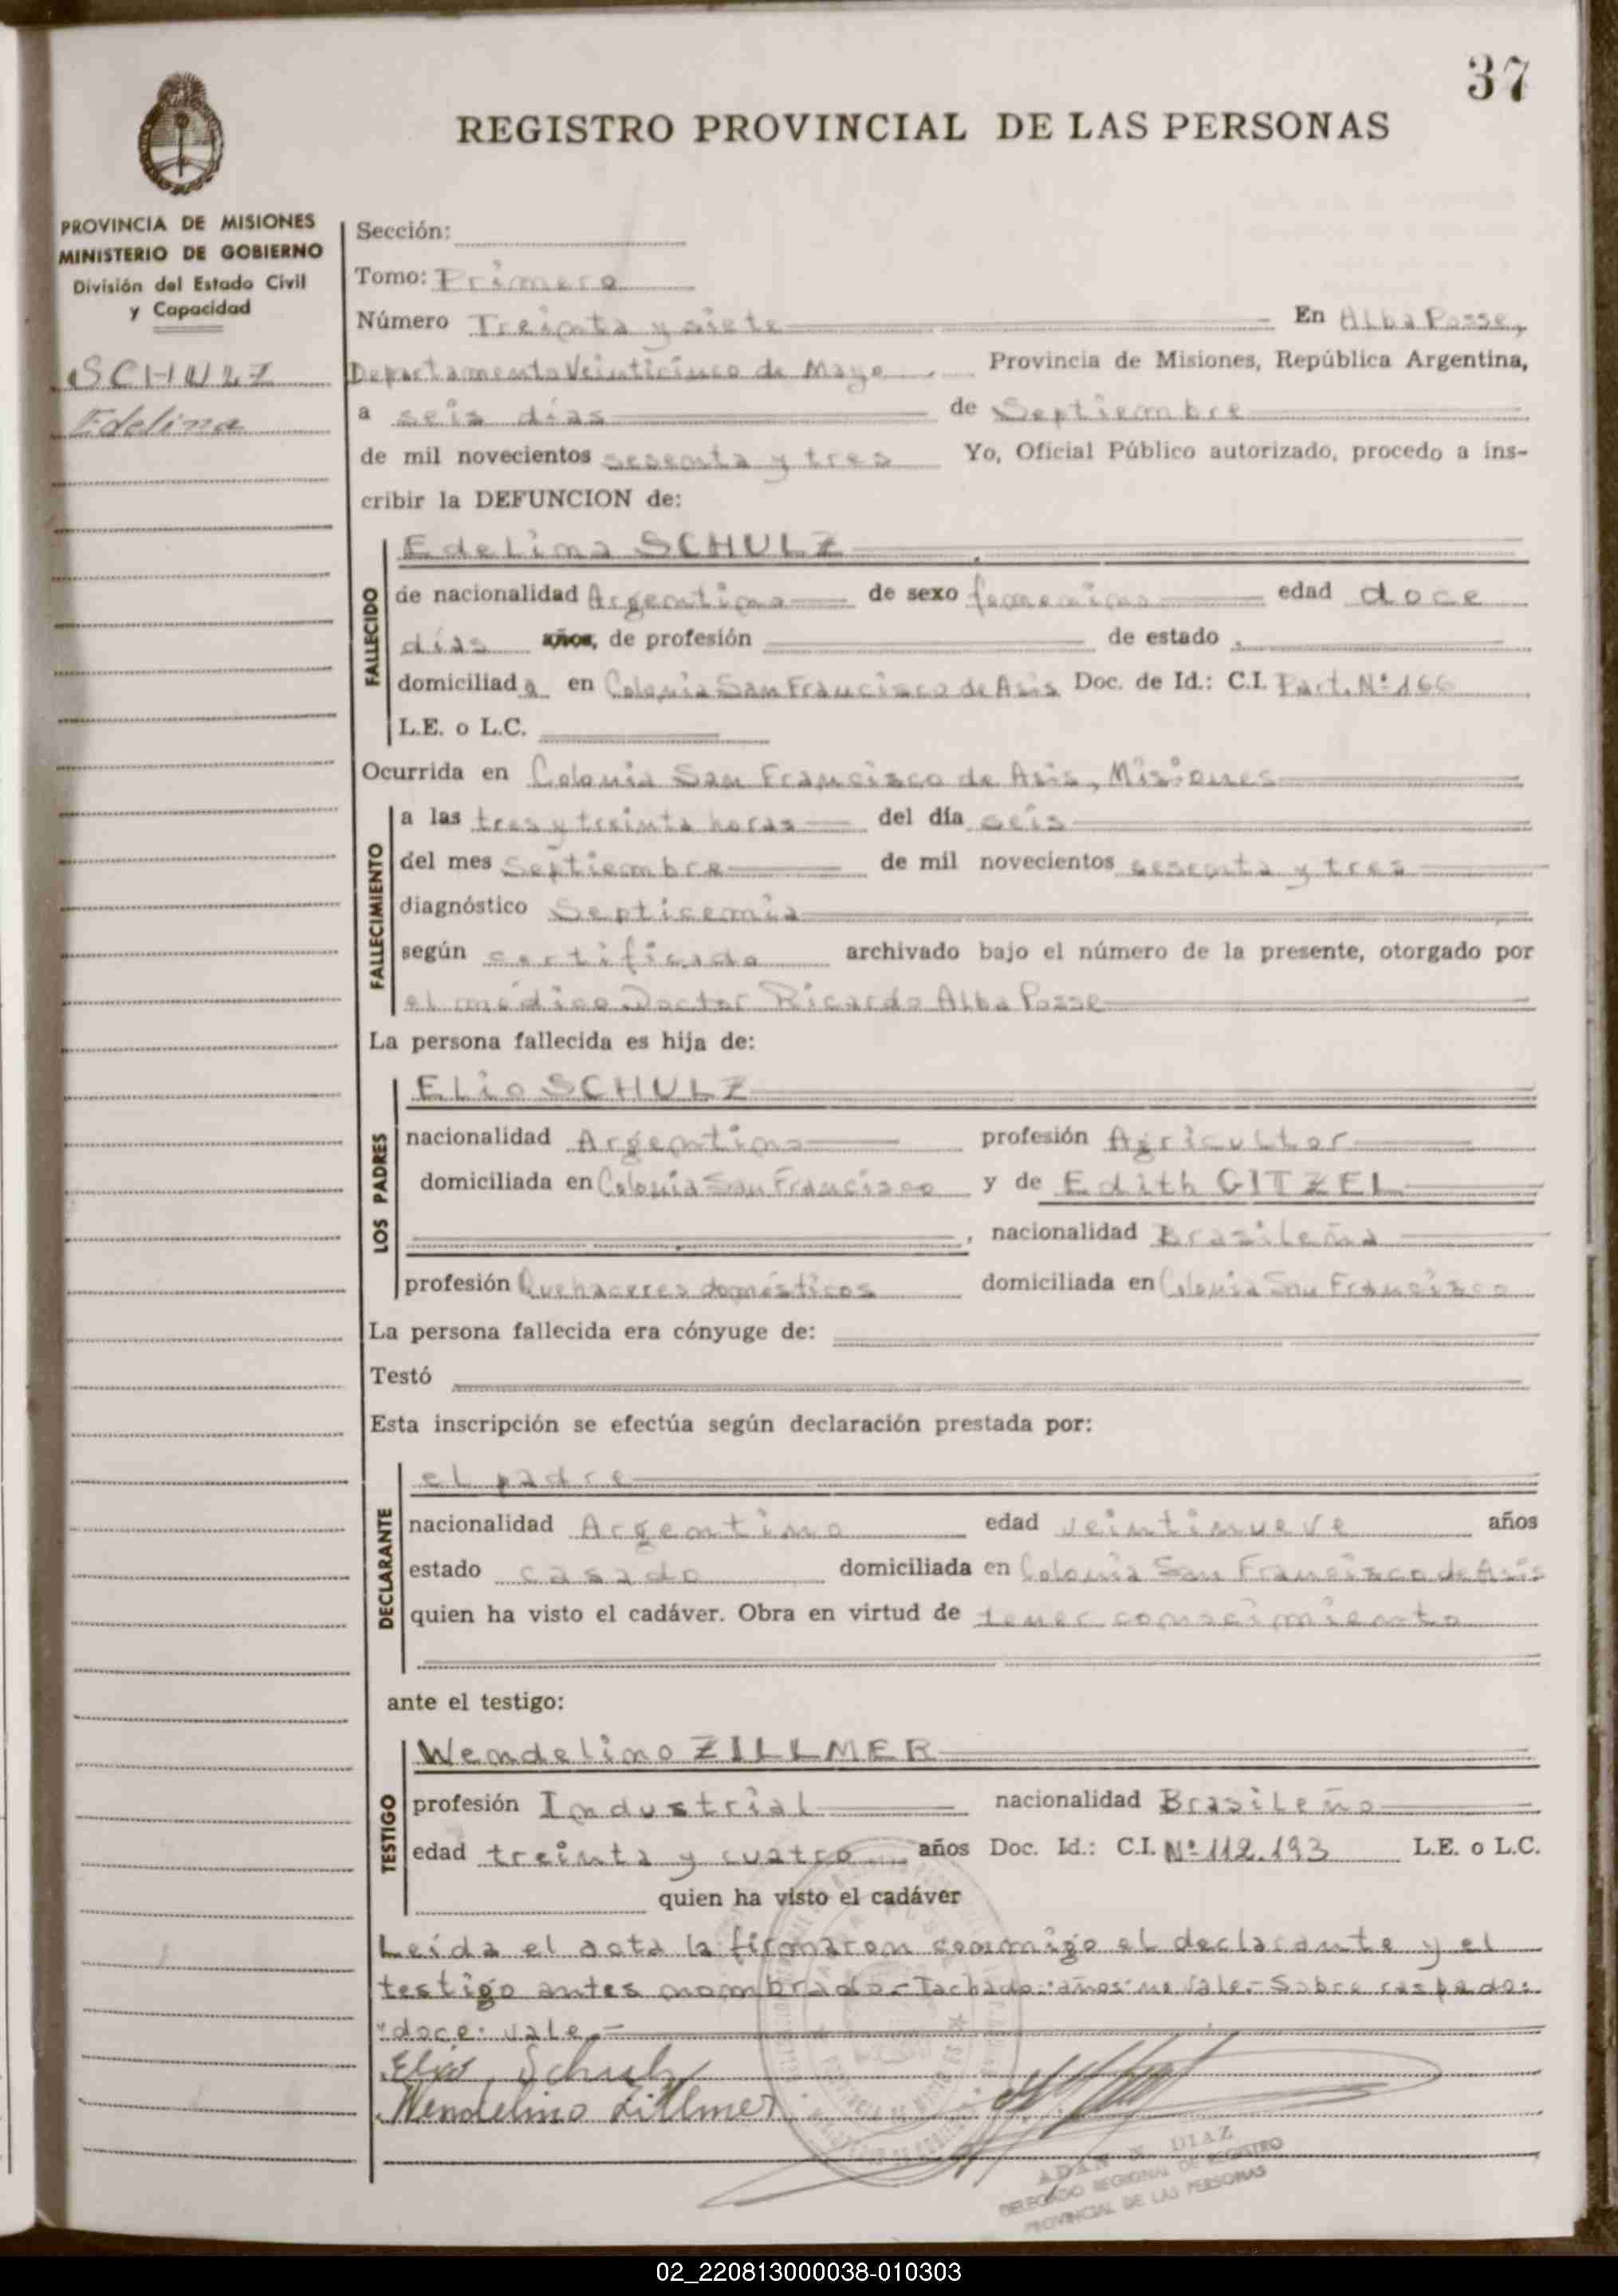 37
REGISTRO PROVINCIAL DE LAS PERSONAS
PROVINCIA DE MISIONES
MINISTERIO DE GOBIERNO
División del Estado Civil
y Capacidad
SCHULZ
Edelina
Sección:
Tomo: Primero
Número Treinta y siete En Alba Posse,
Departamento Veinticinco de Mayo Provincia de Misiones, República Argentina,
a seis días de Septiembre
de mil novecientos sesenta y tres Yo, Oficial Público autorizado, procedo a ins-
cribir la DEFUNCION de:
FALLECIDO
Edelina SCHULZ
de nacionalidad Argentina de sexo femenino edad doce
días años, de profesión de estado
domiciliada en Colonia San Francisco de Asis Doc. de Id.: C.I. Part. Nº 166
L.E. o L.C.
Ocurrida en Colonia San Francisco de Asis, Misiones
FALLECIMIENTO
a las tres y treinta horas del día seis
del mes Septiembre de mil novecientos sesenta y tres
diagnóstico Septicemia
según certificado archivado bajo el número de la presente, otorgado por
el médico Doctor Ricardo Alba Posse
La persona fallecida es hija de:
LOS PADRES
Elio SCHULZ
nacionalidad Argentino profesión Agricultor
domiciliada en Colonia San Francisco y de Edith GITZEL
, nacionalidad Brasileña
profesión Quehaceres domésticos domiciliada en Colonia San Francisco
La persona fallecida era cónyuge de:
Testó
Esta inscripción se efectúa según declaración prestada por:
DECLARANTE
el padre
nacionalidad Argentino edad veintinueve años
estado casado domiciliada en Colonia San Francisco de Asis
quien ha visto el cadáver. Obra en virtud de tener conocimiento
ante el testigo:
TESTIGO
Wendelino ZILLMER
profesión Industrial nacionalidad Brasileño
edad treinta y cuatro años Doc. Id.: C.I. Nº 112.193 L.E. o L.C.
quien ha visto el cadáver
Leída el acta la firmaron conmigo el declarante y el
testigo antes nombrado.- Tachado: "años" no vale.- Sobre raspado:
"doce" vale.-
Elio Schulz
Wendelino Zillmer
ADAN N. DIAZ
DELEGADO REGIONAL DE REGISTRO
PROVINCIAL DE LAS PERSONAS
02_220813000038-010303